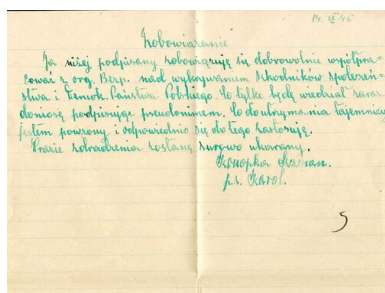 14 IX 46
Zobowiązanie
Ja niżej podpisany zobowiązuję się dobrowolnie współpra-
cować z org. Bezp. nad wykrywaniem szkodników społeczeń-
stwa i Demok. Państwa Polskiego. Co tylko będę wiedział zaraz
doniosę podpisując pseudonimem. Co do utrzymania tajemnicy
jestem pouczony i odpowiednio się do tego zastosuję.
W razie zdradzenia zostanę surowo ukarany.
Konopka
ps. Karol.
5